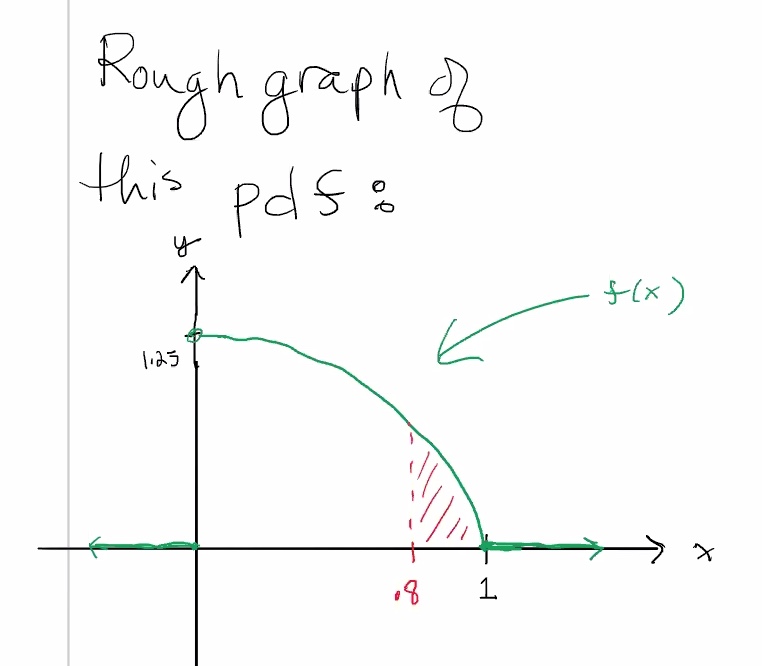 Rough graph of
this pdf:
y
f(x)
1.25
x
.8
1